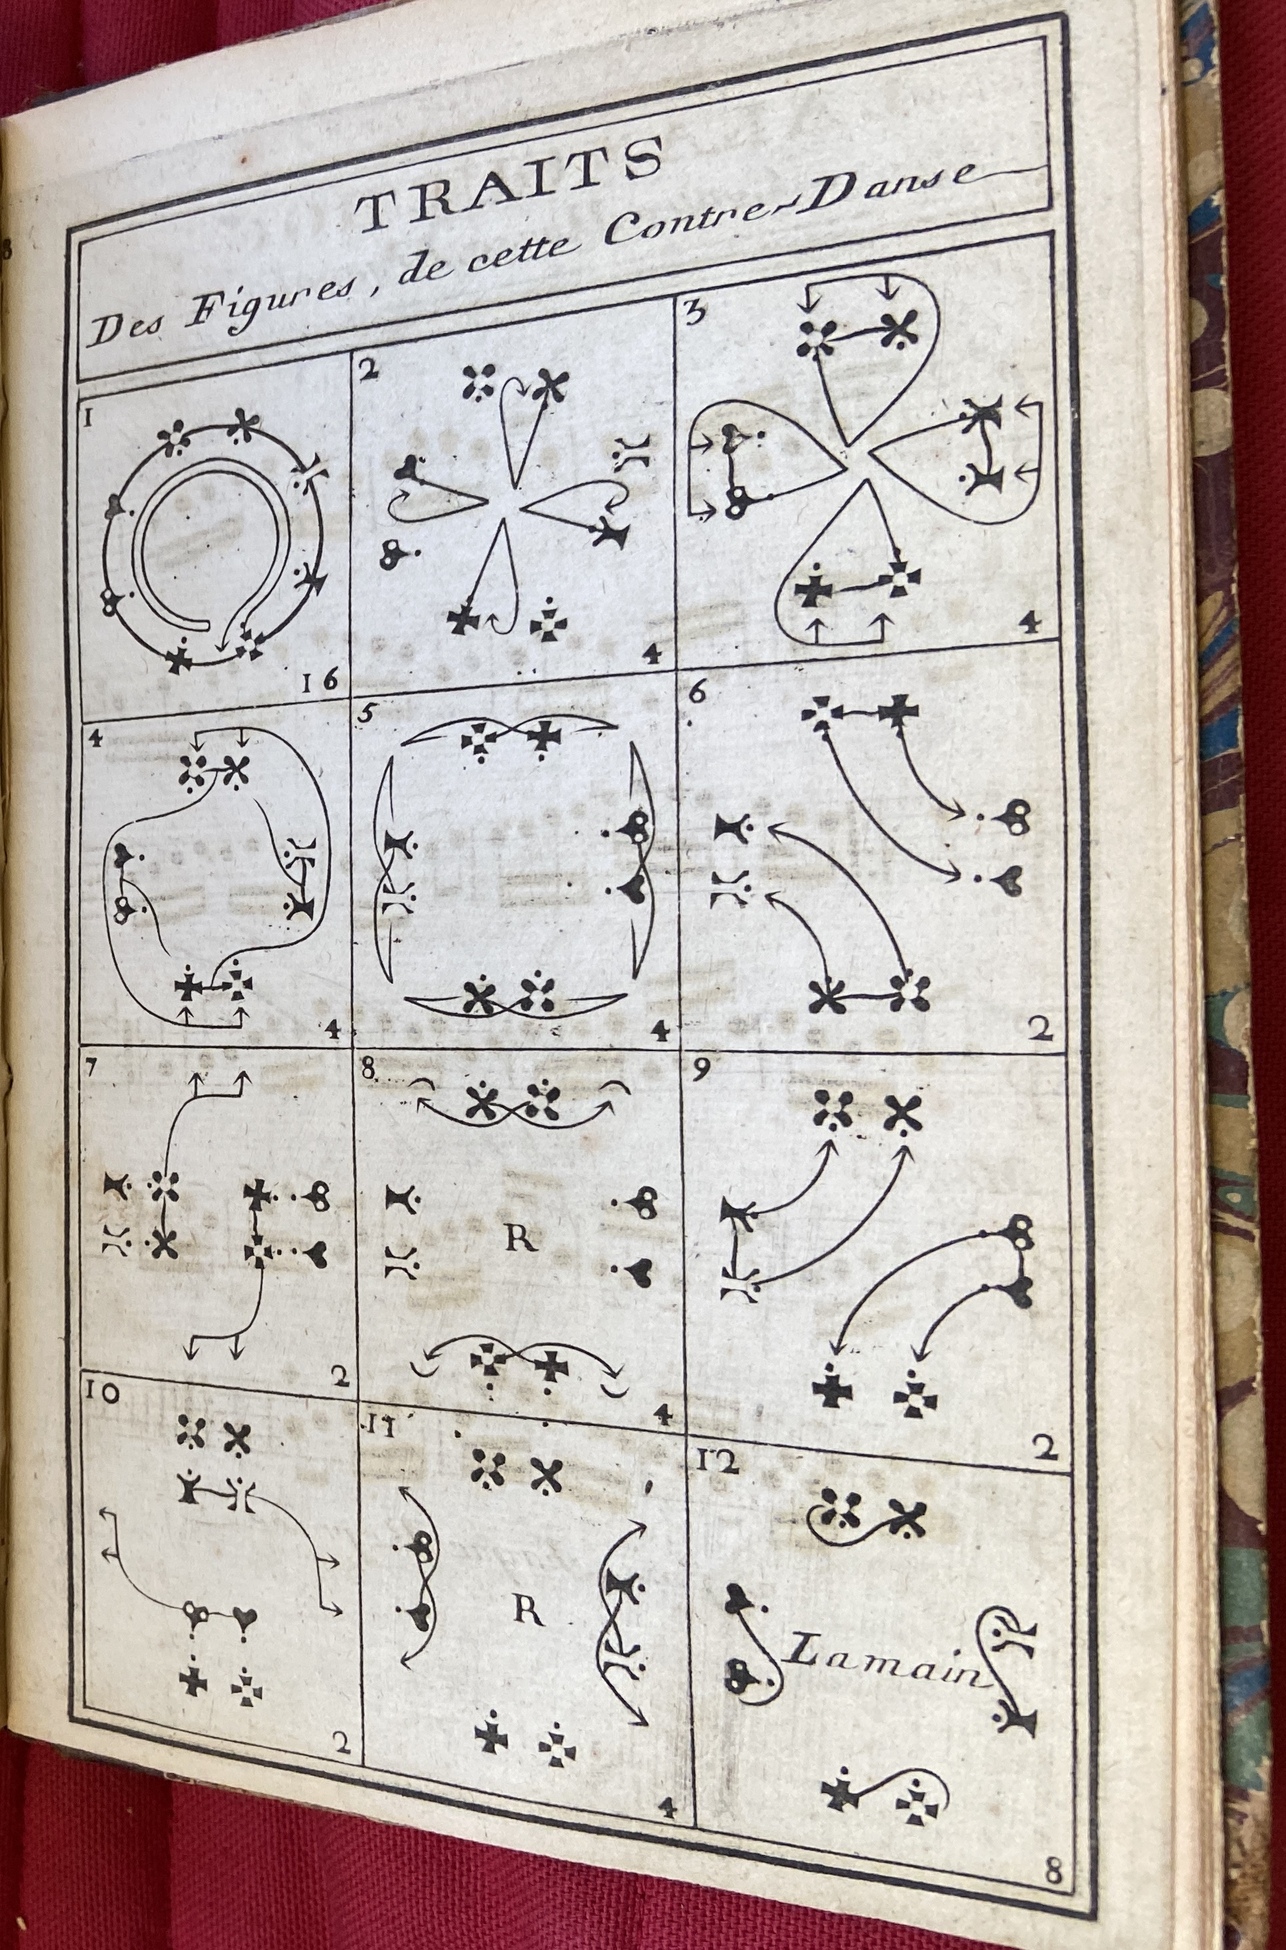 TRAITS
Des Figures, de cette Contre-Danse
1
16
2
4
3
4
4
4
5
4
6
2
7
2
8
R
4
9
2
10
2
11
R
4
12
La main
8